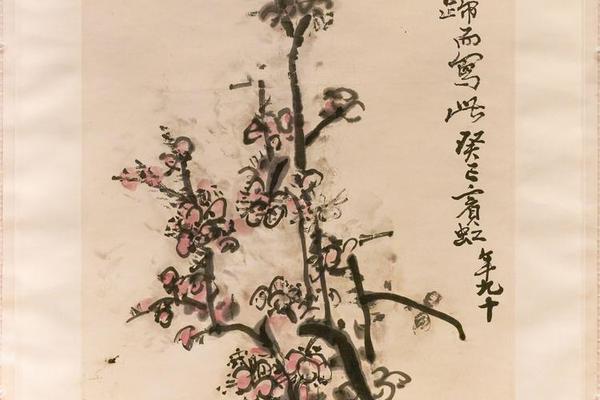 歸而寫此癸巳賓虹年九十